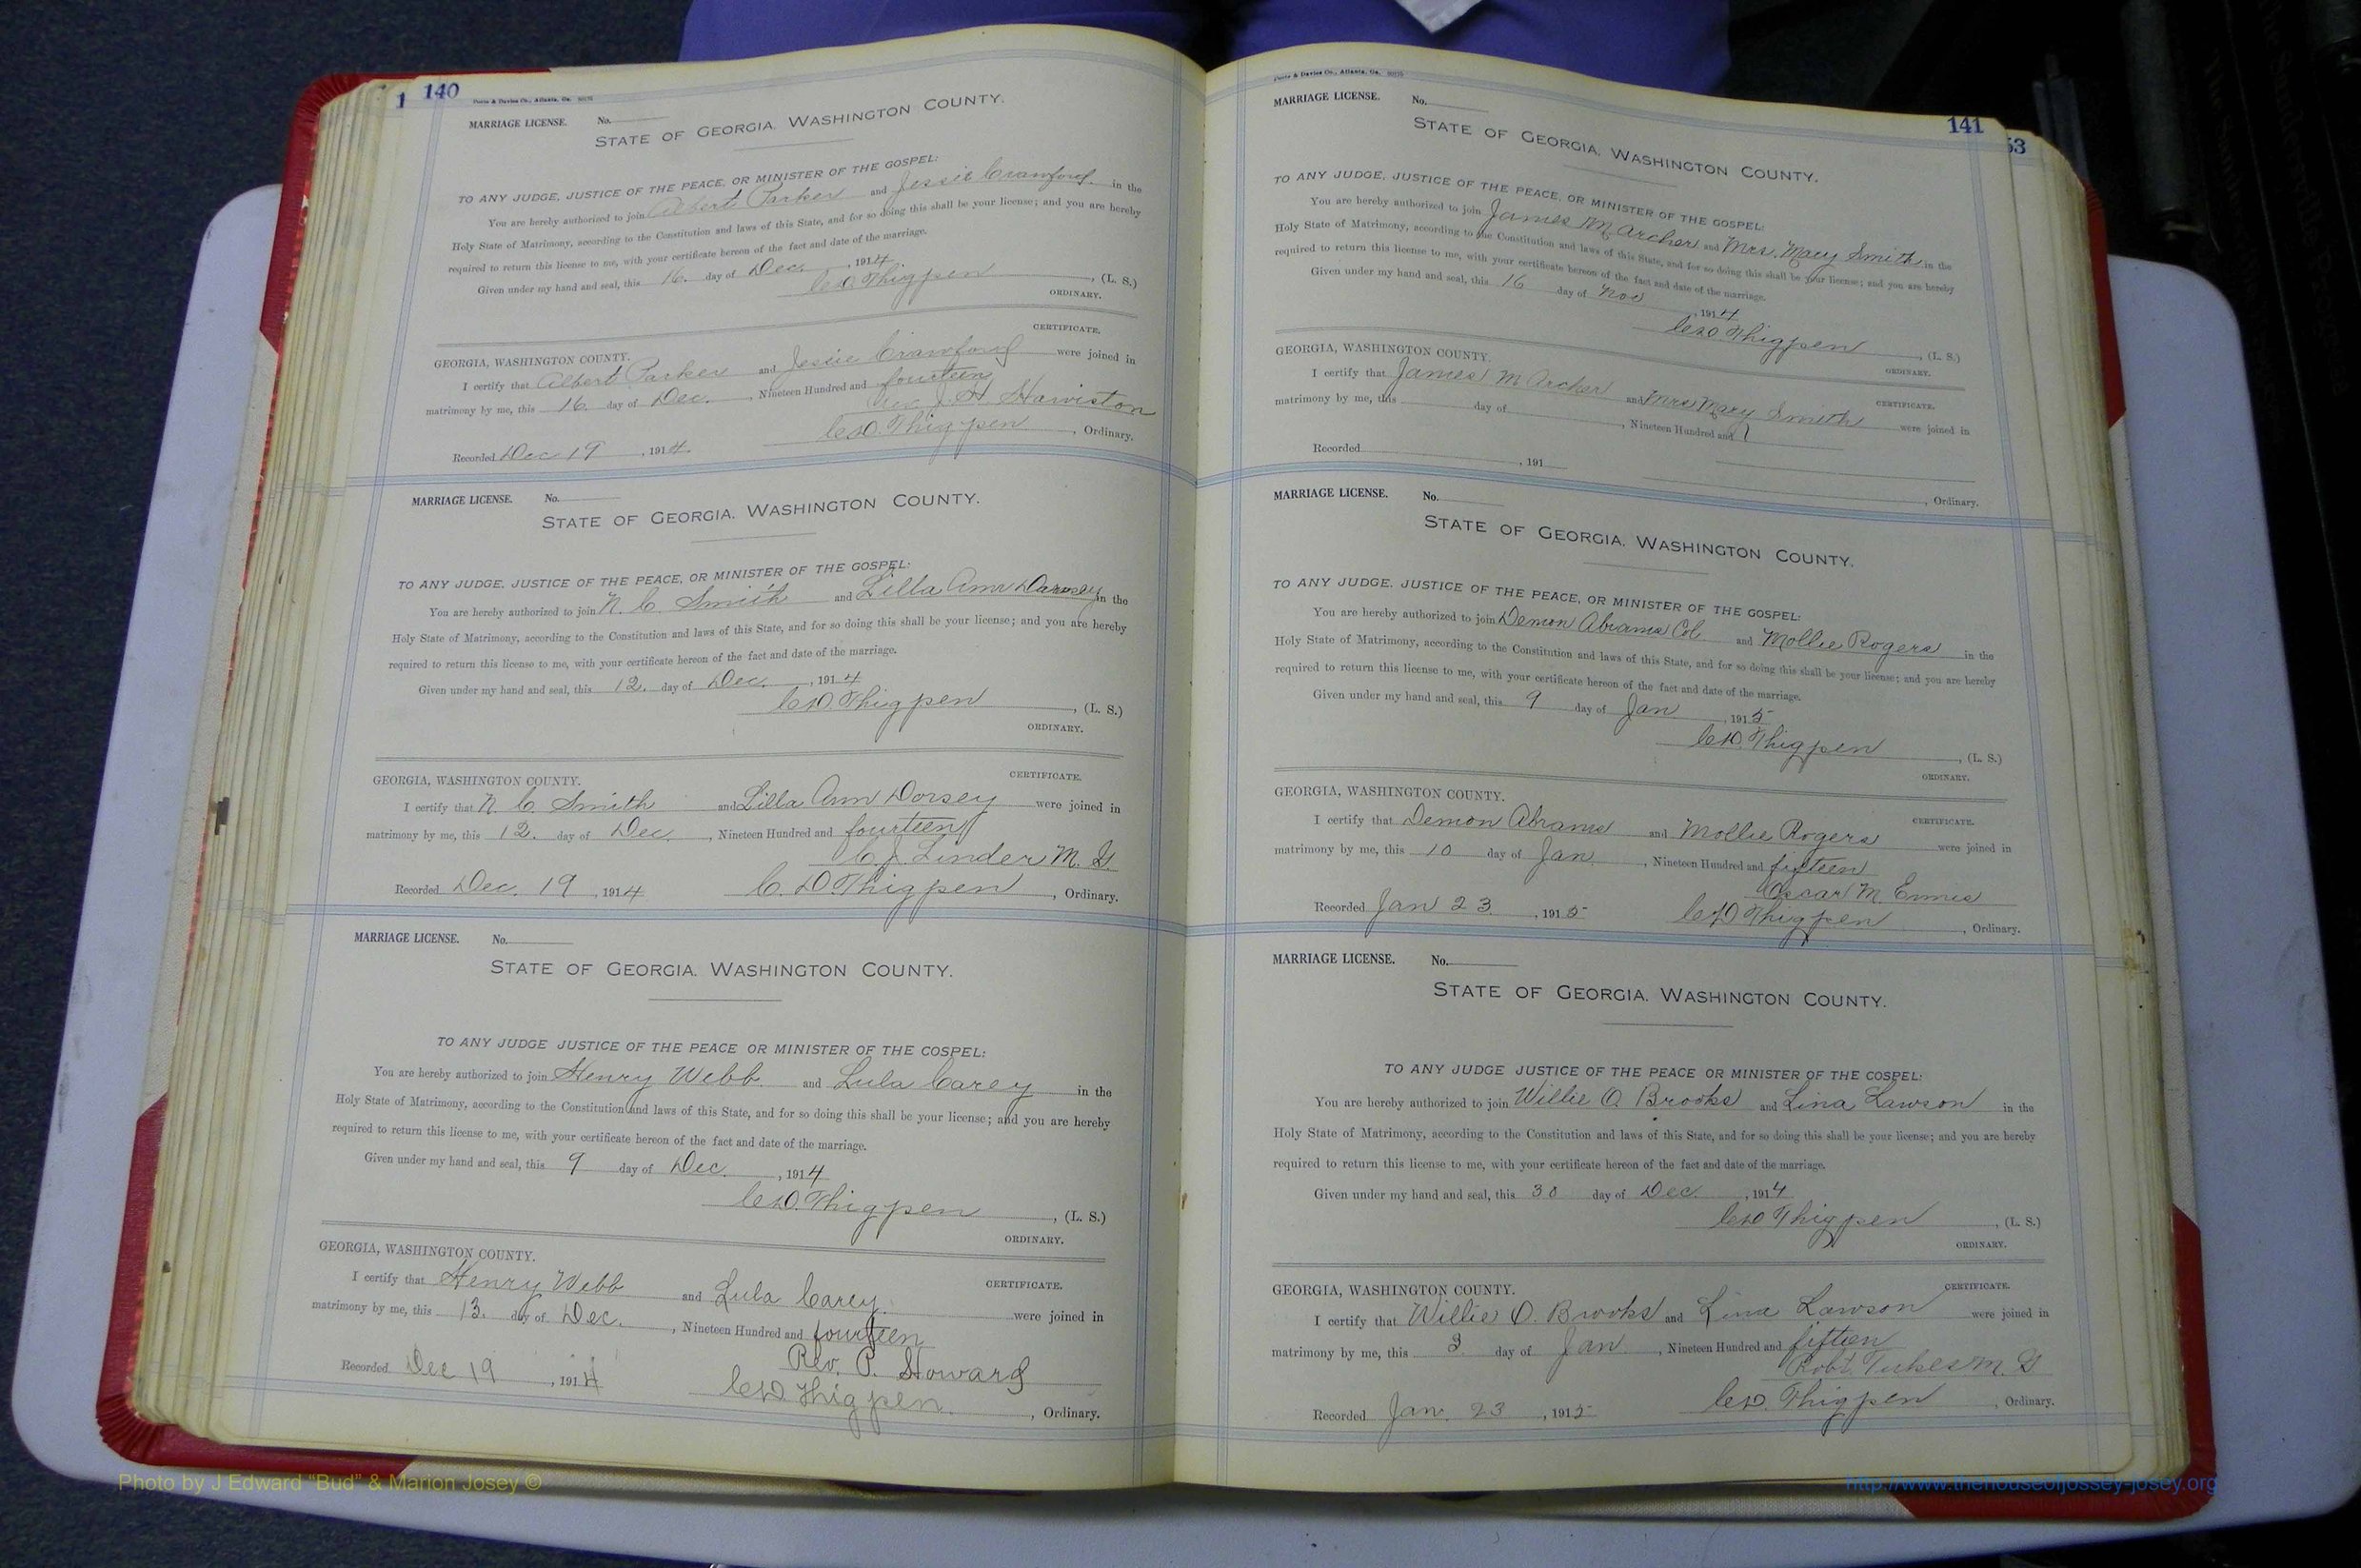 1 140
MARRIAGE LICENSE. No.
STATE OF GEORGIA. WASHINGTON COUNTY.
TO ANY JUDGE, JUSTICE OF THE PEACE, OR MINISTER OF THE GOSPEL:
You are hereby authorized to join Albert Parker and Jessie Crawford in the
Holy State of Matrimony, according to the Constitution and laws of this State, and for so doing this shall be your license; and you are hereby
required to return this license to me, with your certificate hereon of the fact and date of the marriage.
Given under my hand and seal, this 16. day of Dec. , 1914
C.D. Thigpen , (L. S.)
ORDINARY.
CERTIFICATE.
GEORGIA, WASHINGTON COUNTY.
I certify that Albert Parker and Jessie Crawford were joined in
matrimony by me, this 16 day of Dec. , Nineteen Hundred and fourteen
J H
C.D. Thigpen , Ordinary.
Recorded Dec 19 , 1914.
MARRIAGE LICENSE. No.
STATE OF GEORGIA. WASHINGTON COUNTY.
TO ANY JUDGE, JUSTICE OF THE PEACE, OR MINISTER OF THE GOSPEL:
You are hereby authorized to join N. C. Smith and Lilla Ann in the
Holy State of Matrimony, according to the Constitution and laws of this State, and for so doing this shall be your license; and you are hereby
required to return this license to me, with your certificate hereon of the fact and date of the marriage.
Given under my hand and seal, this 12. day of Dec. , 1914
C.D. Thigpen , (L. S.)
ORDINARY.
CERTIFICATE.
GEORGIA, WASHINGTON COUNTY.
I certify that N. C. Smith and Lilla Ann Dorsey were joined in
matrimony by me, this 12. day of Dec. , Nineteen Hundred and fourteen
C. J. Linder M. G.
Recorded Dec. 19 , 1914 C. D. Thigpen , Ordinary.
MARRIAGE LICENSE. No.
STATE OF GEORGIA. WASHINGTON COUNTY.
TO ANY JUDGE JUSTICE OF THE PEACE OR MINISTER OF THE GOSPEL:
You are hereby authorized to join Henry Webb and Lula Carey in the
Holy State of Matrimony, according to the Constitution and laws of this State, and for so doing this shall be your license; and you are hereby
required to return this license to me, with your certificate hereon of the fact and date of the marriage.
Given under my hand and seal, this 9 day of Dec. , 1914
C.D. Thigpen , (L. S.)
ORDINARY.
GEORGIA, WASHINGTON COUNTY.
CERTIFICATE.
I certify that Henry Webb and Lula Carey. were joined in
matrimony by me, this 13. day of Dec. , Nineteen Hundred and fourteen
Rev. P. Howard
Recorded Dec 19 , 1914 C.D. Thigpen. , Ordinary.
141
53
MARRIAGE LICENSE. No.
STATE OF GEORGIA. WASHINGTON COUNTY.
TO ANY JUDGE, JUSTICE OF THE PEACE, OR MINISTER OF THE GOSPEL:
You are hereby authorized to join James M. Archer and Mrs. Mary Smith in the
Holy State of Matrimony, according to the Constitution and laws of this State, and for so doing this shall be your license; and you are hereby
required to return this license to me, with your certificate hereon of the fact and date of the marriage.
Given under my hand and seal, this 16 day of Nov , 1914
C.D. Thigpen , (L. S.)
ORDINARY.
GEORGIA, WASHINGTON COUNTY.
CERTIFICATE.
I certify that James M Archer and Mrs Mary Smith were joined in
matrimony by me, this day of , Nineteen Hundred and
Recorded , 191
, Ordinary.
MARRIAGE LICENSE. No.
STATE OF GEORGIA. WASHINGTON COUNTY.
TO ANY JUDGE, JUSTICE OF THE PEACE, OR MINISTER OF THE GOSPEL:
You are hereby authorized to join Demon Abrams Col and Mollie Rogers in the
Holy State of Matrimony, according to the Constitution and laws of this State, and for so doing this shall be your license; and you are hereby
required to return this license to me, with your certificate hereon of the fact and date of the marriage.
Given under my hand and seal, this 9 day of Jan , 1915
C.D. Thigpen , (L. S.)
ORDINARY.
GEORGIA, WASHINGTON COUNTY.
CERTIFICATE.
I certify that Demon Abrams and Mollie Rogers were joined in
matrimony by me, this 10 day of Jan , Nineteen Hundred and fifteen
Oscar M. Ennis
Recorded Jan 23. , 1915 C.D. Thigpen , Ordinary.
MARRIAGE LICENSE. No.
STATE OF GEORGIA. WASHINGTON COUNTY.
TO ANY JUDGE JUSTICE OF THE PEACE OR MINISTER OF THE GOSPEL:
You are hereby authorized to join Willie O. Brooks and Lina Lawson in the
Holy State of Matrimony, according to the Constitution and laws of this State, and for so doing this shall be your license; and you are hereby
required to return this license to me, with your certificate hereon of the fact and date of the marriage.
Given under my hand and seal, this 30 day of Dec. , 1914
C.D. Thigpen , (L. S.)
ORDINARY.
GEORGIA, WASHINGTON COUNTY.
CERTIFICATE.
I certify that Willie O. Brooks and Lina Lawson were joined in
matrimony by me, this 3. day of Jan. , Nineteen Hundred and fifteen
Robt. M. G
Recorded Jan. 23 , 1915 C.D. Thigpen , Ordinary.
Photo by J Edward “Bud” & Marion Josey ©
http://www.thehouseofjossey-josey.org